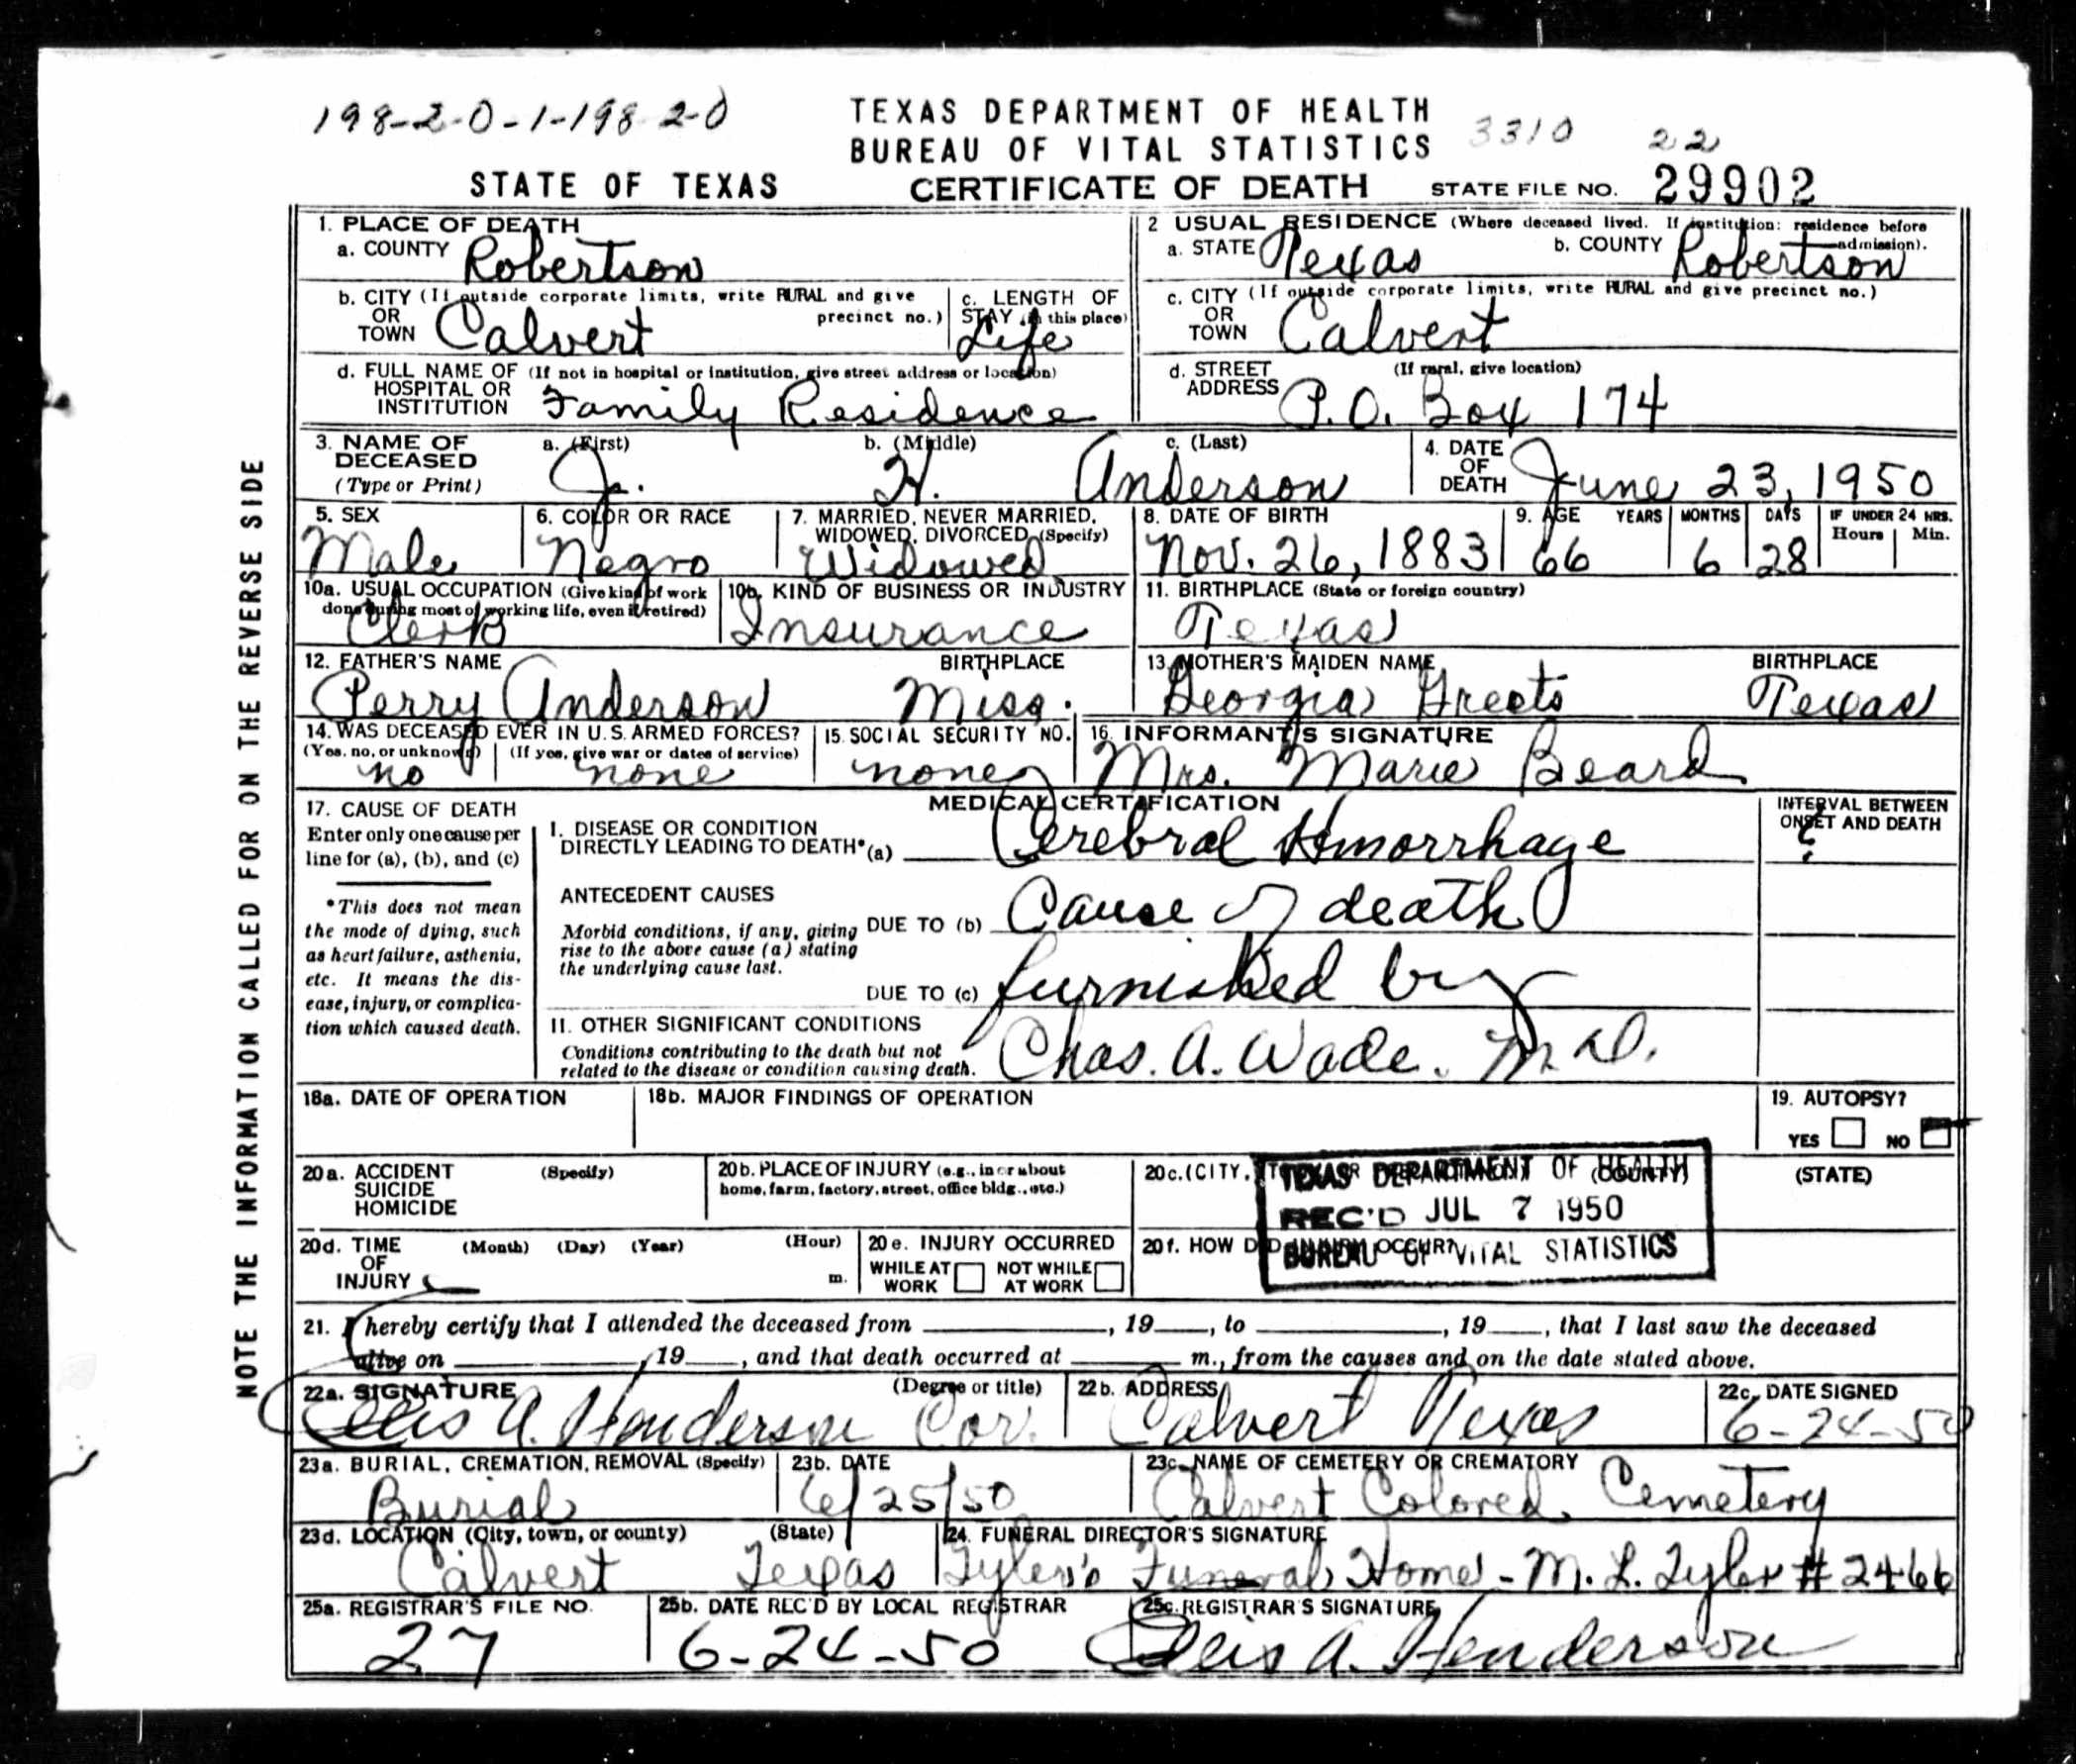 198-2-0-1-198 2-0
TEXAS DEPARTMENT OF HEALTH
BUREAU OF VITAL STATISTICS
3310 22
STATE OF TEXAS CERTIFICATE OF DEATH STATE FILE NO. 29902
NOTE THE INFORMATION CALLED FOR ON THE REVERSE SIDE
1. PLACE OF DEATH
a. COUNTY Robertson
2 USUAL RESIDENCE (Where deceased lived. If institution: residence before admission).
a. STATE Texas b. COUNTY Robertson
b. CITY (If outside corporate limits, write RURAL and give precinct no.)
OR TOWN Calvert
c. LENGTH OF STAY (in this place) Life
c. CITY (If outside corporate limits, write RURAL and give precinct no.)
OR TOWN Calvert
d. FULL NAME OF (If not in hospital or institution, give street address or location)
HOSPITAL OR INSTITUTION Family Residence
d. STREET ADDRESS (If rural, give location)
P.O. Box 174
3. NAME OF DECEASED (Type or Print)
a. (First) b. (Middle) c. (Last)
J. H. Anderson
4. DATE OF DEATH June 23, 1950
5. SEX Male
6. COLOR OR RACE Negro
7. MARRIED, NEVER MARRIED, WIDOWED, DIVORCED (Specify) Widowed
8. DATE OF BIRTH Nov. 26, 1883
9. AGE YEARS MONTHS DAYS IF UNDER 24 HRS. Hours Min.
66 6 28
10a. USUAL OCCUPATION (Give kind of work done during most of working life, even if retired)
Clerk
10b. KIND OF BUSINESS OR INDUSTRY
Insurance
11. BIRTHPLACE (State or foreign country)
Texas
12. FATHER'S NAME BIRTHPLACE
Perry Anderson Miss.
13. MOTHER'S MAIDEN NAME BIRTHPLACE
Georgia Texas
14. WAS DECEASED EVER IN U.S. ARMED FORCES?
(Yes, no, or unknown) (If yes, give war or dates of service)
no none
15. SOCIAL SECURITY NO.
none
16. INFORMANT'S SIGNATURE
Mrs. Marie Beard
17. CAUSE OF DEATH
Enter only one cause per line for (a), (b), and (c)
*This does not mean the mode of dying, such as heart failure, asthenia, etc. It means the disease, injury, or complication which caused death.
MEDICAL CERTIFICATION
INTERVAL BETWEEN ONSET AND DEATH
I. DISEASE OR CONDITION DIRECTLY LEADING TO DEATH* (a) Cerebral Hmorrhage
ANTECEDENT CAUSES
Morbid conditions, if any, giving rise to the above cause (a) stating the underlying cause last.
DUE TO (b) Cause of death
DUE TO (c) furnished by
II. OTHER SIGNIFICANT CONDITIONS
Conditions contributing to the death but not related to the disease or condition causing death.
Chas. A. Wade. M.D.
18a. DATE OF OPERATION
18b. MAJOR FINDINGS OF OPERATION
19. AUTOPSY?
YES NO
20a. ACCIDENT SUICIDE HOMICIDE (Specify)
20b. PLACE OF INJURY (e.g., in or about home, farm, factory, street, office bldg., etc.)
20c. (CITY, (COUNTY) (STATE)
TEXAS DEPARTMENT OF HEALTH
REC'D JUL 7 1950
BUREAU OF VITAL STATISTICS
20d. TIME OF INJURY (Month) (Day) (Year) (Hour) m.
20e. INJURY OCCURRED
WHILE AT WORK NOT WHILE AT WORK
20f. HOW DID INJURY OCCUR?
21. I hereby certify that I attended the deceased from , 19 , to , 19 , that I last saw the deceased
alive on , 19 , and that death occurred at m., from the causes and on the date stated above.
22a. SIGNATURE (Degree or title)
Ellis A. Henderson Cor.
22b. ADDRESS
Calvert Texas
22c. DATE SIGNED
6-24-50
23a. BURIAL, CREMATION, REMOVAL (Specify)
Burial
23b. DATE
6/25/50
23c. NAME OF CEMETERY OR CREMATORY
Calvert Colored Cemetery
23d. LOCATION (City, town, or county) (State)
Calvert Texas
24. FUNERAL DIRECTOR'S SIGNATURE
Tyler's Funeral Home - M. L. Tyler # 2466
25a. REGISTRAR'S FILE NO.
27
25b. DATE REC'D BY LOCAL REGISTRAR
6-24-50
25c. REGISTRAR'S SIGNATURE
Ellis A. Henderson